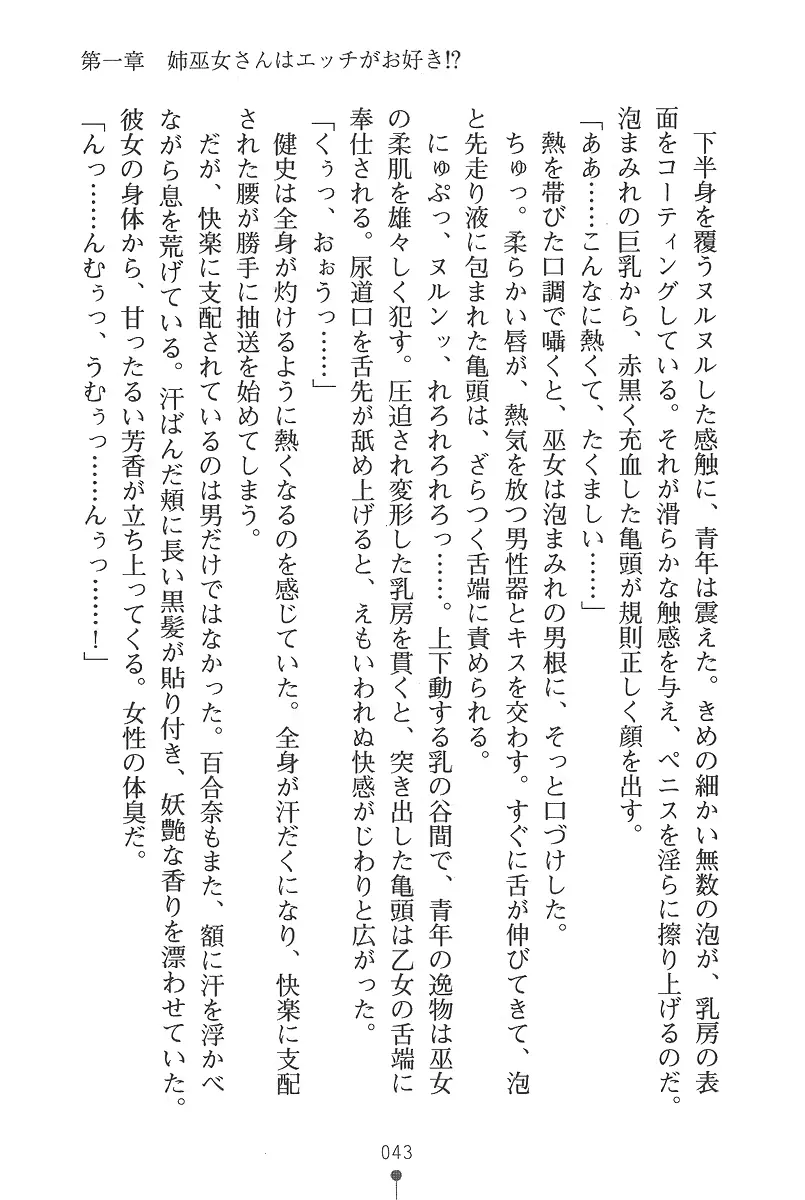 第一章　姉巫女さんはエッチがお好き!?
　下半身を覆うヌルヌルした感触に、青年は震えた。きめの細かい無数の泡が、乳房の表
面をコーティングしている。それが滑らかな触感を与え、ペニスを淫らに擦り上げるのだ。
泡まみれの巨乳から、赤黒く充血した亀頭が規則正しく顔を出す。
「ああ……こんなに熱くて、たくましい……」
　熱を帯びた口調で囁くと、巫女は泡まみれの男根に、そっと口づけした。
　ちゅっ。柔らかい唇が、熱気を放つ男性器とキスを交わす。すぐに舌が伸びてきて、泡
と先走り液に包まれた亀頭は、ざらつく舌端に責められる。
　にゅぷっ、ヌルンッ、れろれろれろっ……。上下動する乳の谷間で、青年の逸物は巫女
の柔肌を雄々しく犯す。圧迫され変形した乳房を貫くと、突き出した亀頭は乙女の舌端に
奉仕される。尿道口を舌先が舐め上げると、えもいわれぬ快感がじわりと広がった。
「くぅっ、おぉうっ……」
　健史は全身が灼けるように熱くなるのを感じていた。全身が汗だくになり、快楽に支配
された腰が勝手に抽送を始めてしまう。
　だが、快楽に支配されているのは男だけではなかった。百合奈もまた、額に汗を浮かべ
ながら息を荒げている。汗ばんだ頬に長い黒髪が貼り付き、妖艶な香りを漂わせていた。
彼女の身体から、甘ったるい芳香が立ち上ってくる。女性の体臭だ。
「んっ……んむぅっ、うむぅっ……んぅっ……！」
043